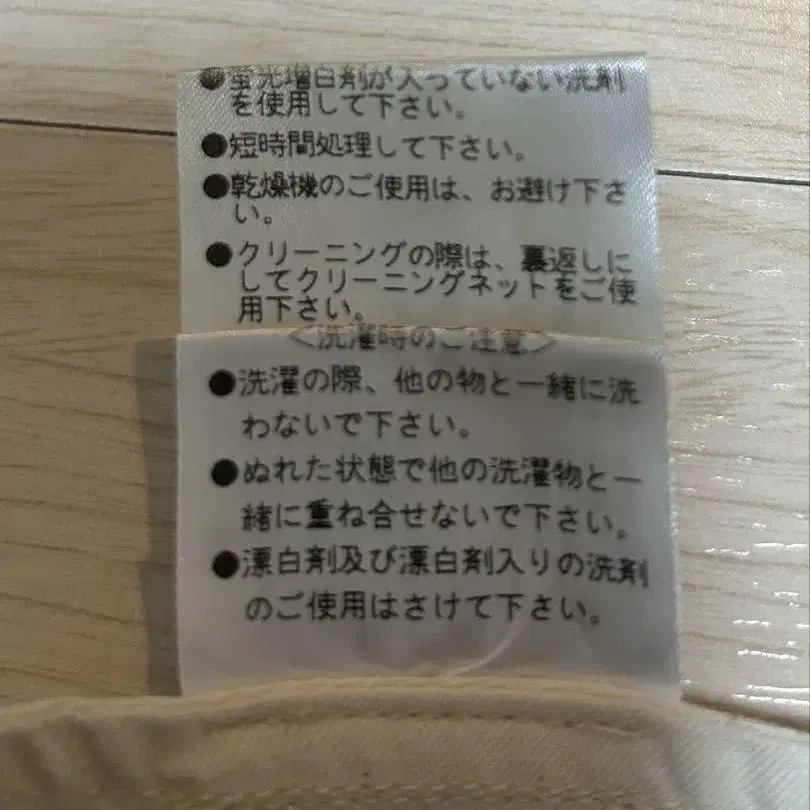 ●蛍光増白剤が入っていない洗剤
を使用して下さい。
●短時間処理して下さい。
●乾燥機のご使用は、お避け下さ
い。
●クリーニングの際は、裏返しに
してクリーニングネットをご使
用下さい。
<洗濯時のご注意>
●洗濯の際、他の物と一緒に洗
わないで下さい。
●ぬれた状態で他の洗濯物と一
緒に重ね合せないで下さい。
●漂白剤及び漂白剤入りの洗剤
のご使用はさけて下さい。